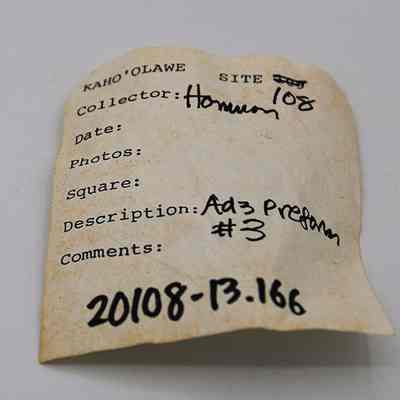 KAHO'OLAWE SITE 108
Collector:
Date:
Photos:
Square:
Description: Adz Preform
#3
Comments:
20108-13.166